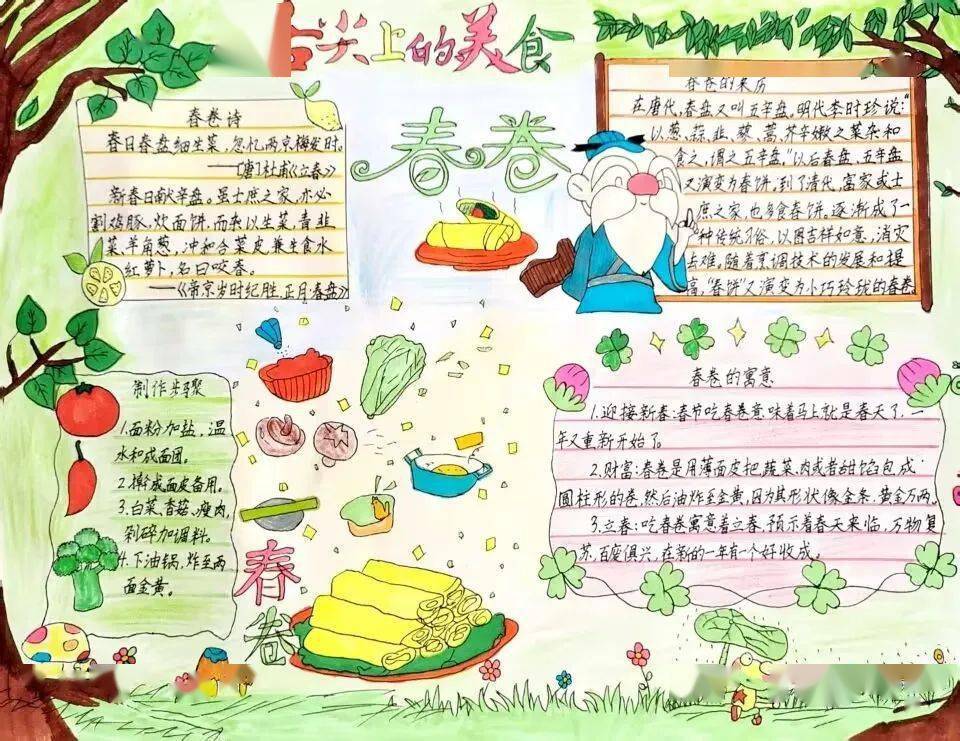 舌尖上的美食
春卷
春卷诗
春日春盘细生菜,忽忆两京梅发时。
——[唐]杜甫《立春》
新春日献辛盘。虽士庶之家,亦必
割鸡豚、炊面饼,而杂以生菜,青韭
菜,羊角葱,冲和合菜皮,兼生食水
红萝卜,名曰咬春。
——《帝京岁时纪胜.正月.春盘》
春卷的来历
在唐代,春盘又叫五辛盘。明代李时珍说:“
以葱、蒜、韭、蓼、蒿、芥辛嫩之菜杂和
食之,谓之五辛盘。”以后春盘、五辛盘
又演变为春饼,到了清代,富家或士
庶之家,也多食春饼。逐渐成了一
种传统习俗,以图吉祥如意,消灾
去难。随着烹调技术的发展和提
高,“春饼”又演变为小巧玲珑的春卷。
制作步骤
1.面粉加盐,温
水和成面团。
2.擀成面皮备用。
3.白菜、香菇、瘦肉,
剁碎加调料.
4.下油锅,炸至两
面金黄。
春卷的寓意
1.迎接新春:春节吃春卷意味着马上就是春天了,一
年又重新开始了。
2.财富:春卷是用薄面皮把蔬菜、肉或者甜馅包成
圆柱形的卷,然后油炸至金黄,因为其形状像金条,黄金万两。
3.立春:吃春卷寓意着立春,预示着春天来临,万物复
苏,百废俱兴,在新的一年有一个好收成。
春卷